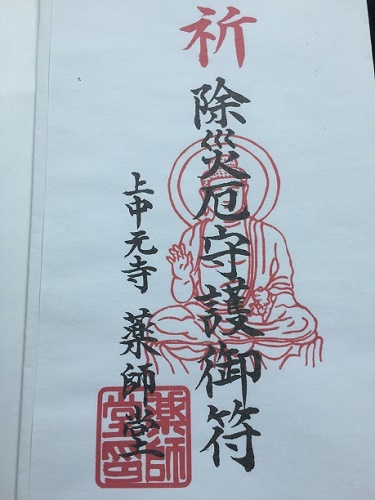 祈
除災厄守護御符
上中元寺 薬師堂
薬師
堂印